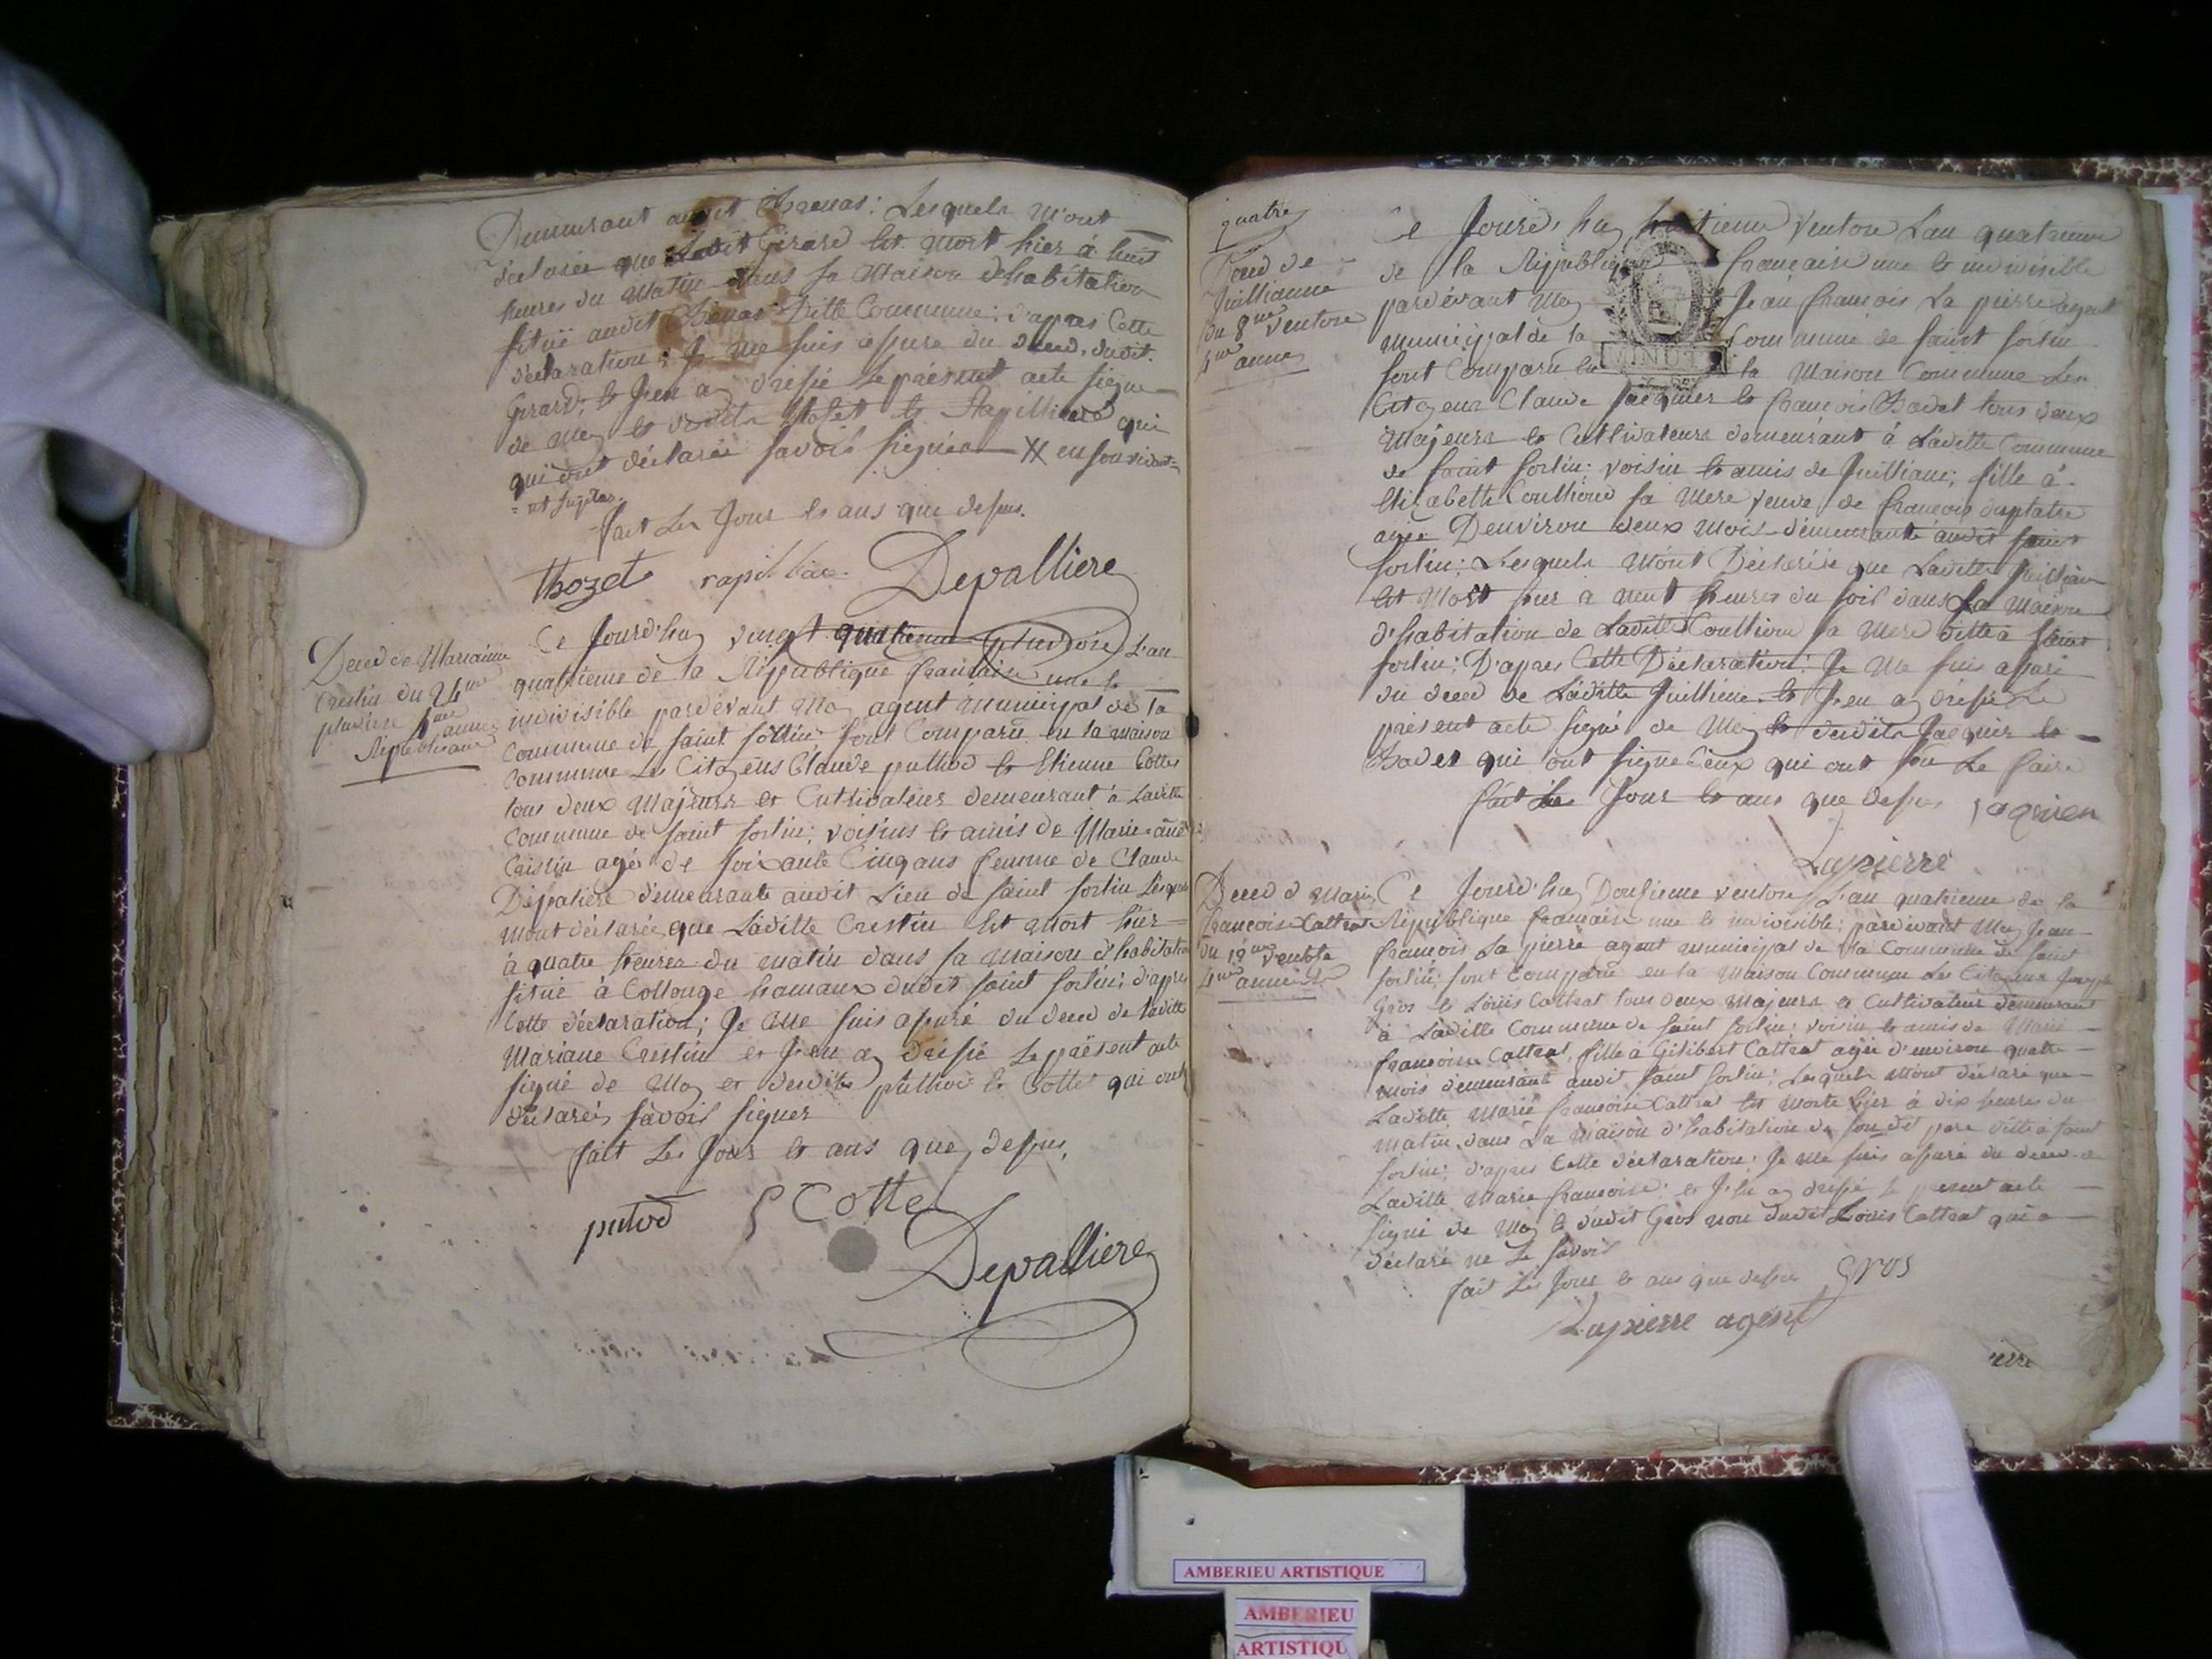 Demeurant audit Chenas: Lesquels mont
déclarée que Ledit Girard Est mort hier à huit
heures du matin dans sa Maison d'habitation
situé audit Chenas ditte Commune: d'apres Cette
déclaration; Je me suis assure du deced. dudit.
Girard, et J'en ay dressé Le présent acte signe
de Moy et desdits thozet et Rapilliard qui
qui ont déclarée savoir signér
fait Les Jour et ans que dessus.
thozet rapilliar Depalliere
Deced de Mariainne
Crestin du 24me
pluviose 4me anné
Républicaine
Ce Jourd'huy vingt quatrieme pluviose L'an
quatrieme de la République francaise une et
indivisible pardevant Moy agent municipal de la
Commune de saint fortin sont Comparu en la maison
Commune Les Citoyens Claude puthod et Etienne Cotte
tous deux Majeurs et Cultivateurs demeurant à Laditte
Commune de saint fortin; voisins et amis de Marie anne
Cristin agée de soixante Cinq ans femme de Claude
Dépaliere demeurante audit Lieu de saint fortin Lesquels
mont déclarée que Laditte Crestin Est mort hier
à quatre heures du matin dans sa maison d'habitation
situé à Collonge hamaux dudit saint fortin; d'apres
Cette déclaration; Je Me suis assuré du deced de laditte
Mariane Crestin et J'en ay dressé Le présent acte
signé de Moy et desdits puthod et Cotte qui ont
déclarés savoir signer
fait Les Jour et ans que dessus,
putod E Cotte
Depalliere
quatre
Deced de
Juillianne
du 8me Ventose
4me anné
Ce Jourd'huy huitieme Ventose L'an quatrieme
de la République francaise une et indivisible
pardevant Moy Jean francois La pierre agent
municipal de la Commune de saint fortin
MINUTE
sont Comparu en la Maison Commune Les
Citoyens Claude Jacquier et francois Badet tous deux
Majeurs et Cultivateurs demeurant à Laditte Commune
de saint fortin: voisin et amis de Juilliane; fille à
Elizabeth Coulliond sa Mere veuve de francois
agée D'environ deux mois demeurante audit saint
fortin; Lesquels Mont Déclarée que Laditte Juilliane
Est Mort hier à neuf heures du soir dans La Maison
d'habitation de Laditte Coulliond sa Mere ditte à saint
fortin: D'apres Cette Déclaration: Je Me suis assuré
du deced de Laditte Juillienne et J'en ay dressé Le
présent acte signé de Moy et desdits Jacquier et
Badet qui ont signe Ceux qui ont sçu Le faire
fait Les Jour et ans que dessus jaquier
Lapierre
Deced d Marie
francoise Cattrat
du 12me Ventose
4me année
Ce Jourd'huy Douzieme ventose L'an quatrieme de la
République francaise une et indivisible; pardevant Moy Jean
francois La pierre agent municipal de la Commune de saint
fortin: sont Comparu en la Maison Commune Les Citoyens Joseph
Gros et Louis Cattrat tous deux Majeurs et Cultivateur demeurant
à Laditte Commune de saint fortin: voisin et amis de Marie
francoise Cattrat, fille à Gilibert Cattrat agée d'environ quatre
mois demeurant audit saint fortin; Lesquels Mont déclaré que
Laditte Marie francoise Cattrat Est Morte hier à dix heures du
matin dans La Maison d'habitation de son dit pere ditte à saint
fortin; d'apres Cette déclaration: Je Me suis assuré du deced de
Laditte Marie francoise; et J'en ay dressé Le present acte
signé de Moy et dudit Gros non dudit Louis Cattrat qui a
déclaré ne Le savoir
fait Les Jour et ans que dessus Gros
Lapierre agent
AMBERIEU ARTISTIQUE
AMBERIEU
ARTISTIQU